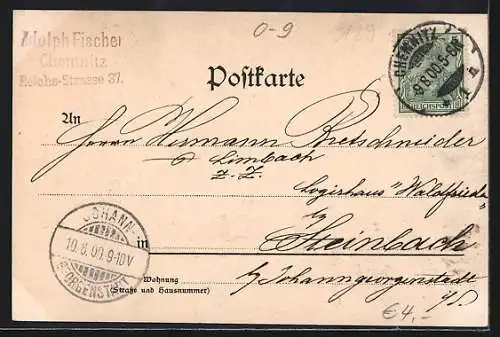 0-9
129
Adolph Fischer
Chemnitz
Reichs-Strasse 37.
CHEMNITZ
9.8.00.5-6N
REICHSPOST
Postkarte
An
Herrn Hermann Bretschneider
Limbach
z. Z.
Logirhaus "Waldfrieden"
b/
Steinbach
in
JOHANN-
10.8.00.9-10V
GEORGENSTADT
Wohnung
(Straße und Hausnummer)
b/Johanngeorgenstadt
i/S.
€4,-